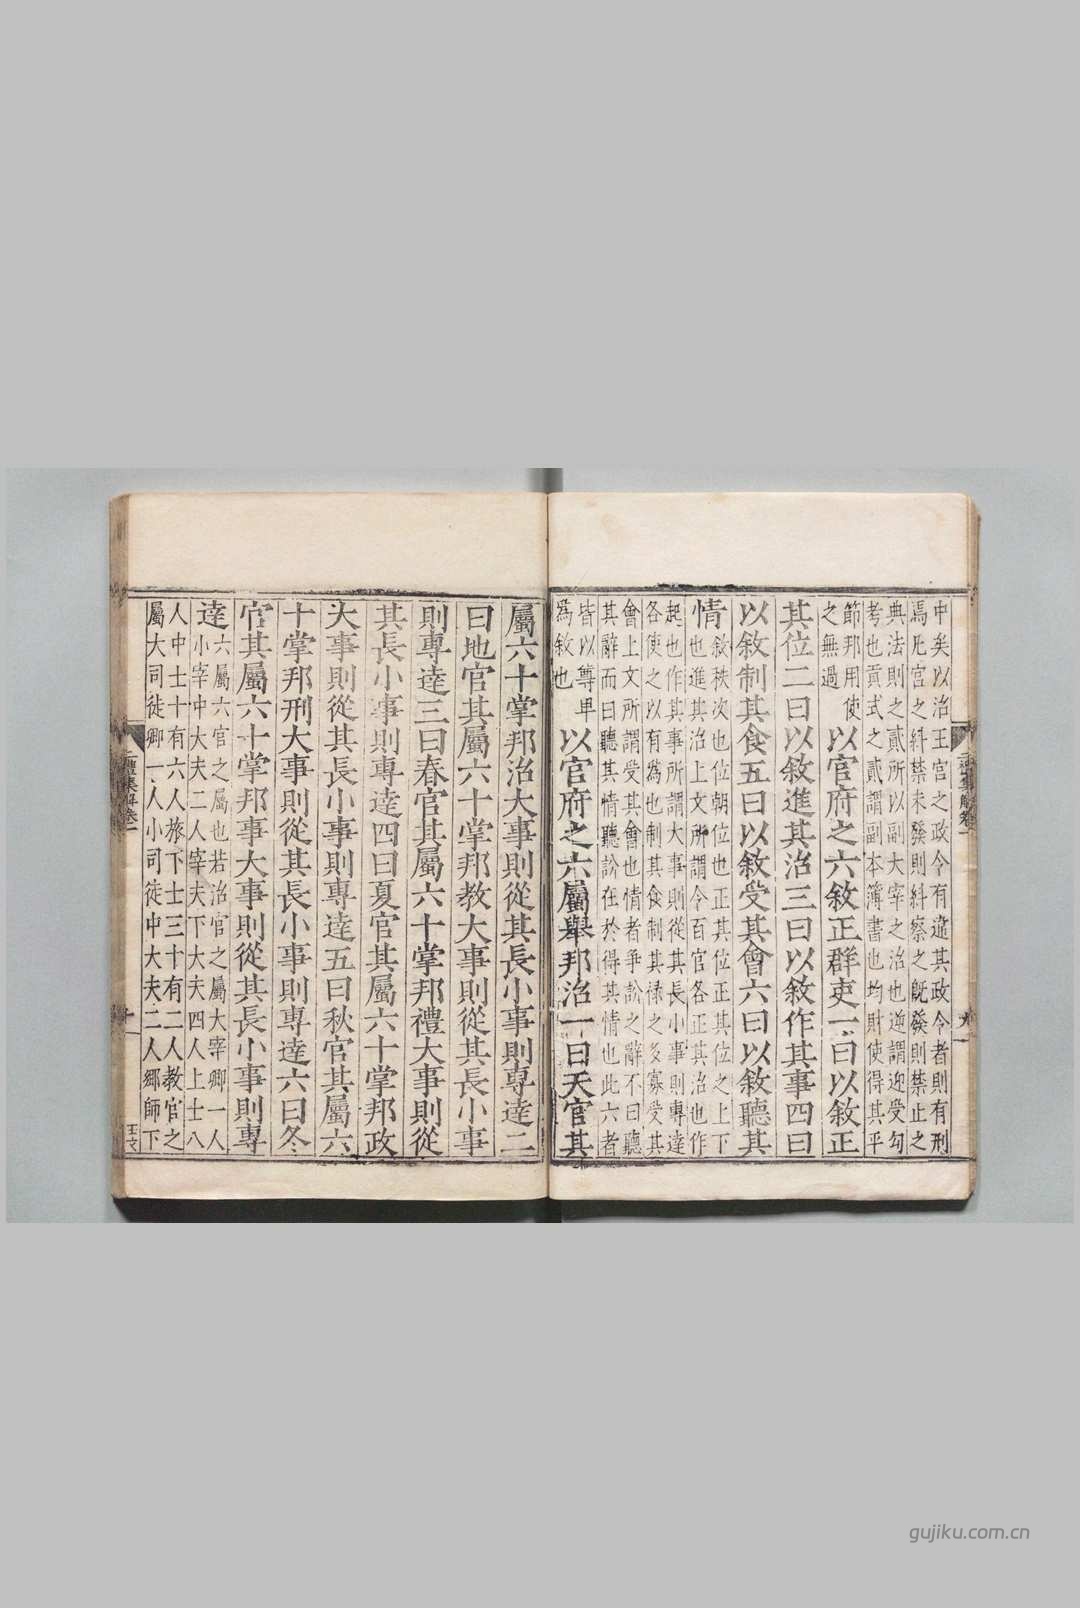 中矣以治王宮之政令有違其政令者則有刑
焉凡宮之糾禁未發則糾察之旣發則禁止之
典法則之貳所以副大宰之治也逆謂迎受句
考也貢式之貳謂副本簿書也均財使得其平
節邦用使
之無過
以官府之六敘正群吏一曰以敘正
其位二曰以敘進其治三曰以敘作其事四曰
以敘制其食五曰以敘受其會六曰以敘聽其
情
敘秩次也位朝位也正其位之上下
也進其治上文所謂令百官各正其治也作
起也作其事所謂大事則從其長小事則專達
各使之以有為也制其食制其祿之多寡受其
會上文所謂受其會也情者爭訟之辭不曰聽
其辭而曰聽其情聽訟在於得其情也此六者
皆以尊甲
為敘也
以官府之六屬舉邦治一曰天官其
屬六十掌邦治大事則從其長小事則専達二
曰地官其屬六十掌邦教大事則從其長小事
則專達三曰春官其屬六十掌邦禮大事則從
其長小事則專達四曰夏官其屬六十掌邦政
大事則從其長小事則專達五曰秋官其屬六
十掌邦刑大事則從其長小事則專達六曰冬
官其屬六十掌邦事大事則從其長小事則專
達
六屬六官之屬也若治官之屬大宰卿一人
小宰中大夫二人宰夫下大夫四人上士八
人中士十有六人旅下士三十有二人教官之
屬大司徒卿一人小司徒中大夫二人鄉師下
二禮集解卷一
十一
王文
gujiku.com.cn